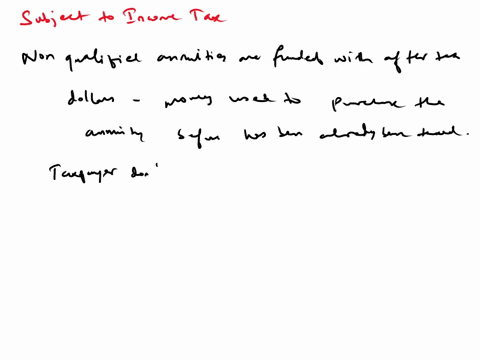 Subject to Income Tax
Non qualified annuities are funded with after tax
dollars - money used to purchase the
annuity before has been already been taxed.
Taxpayer don'